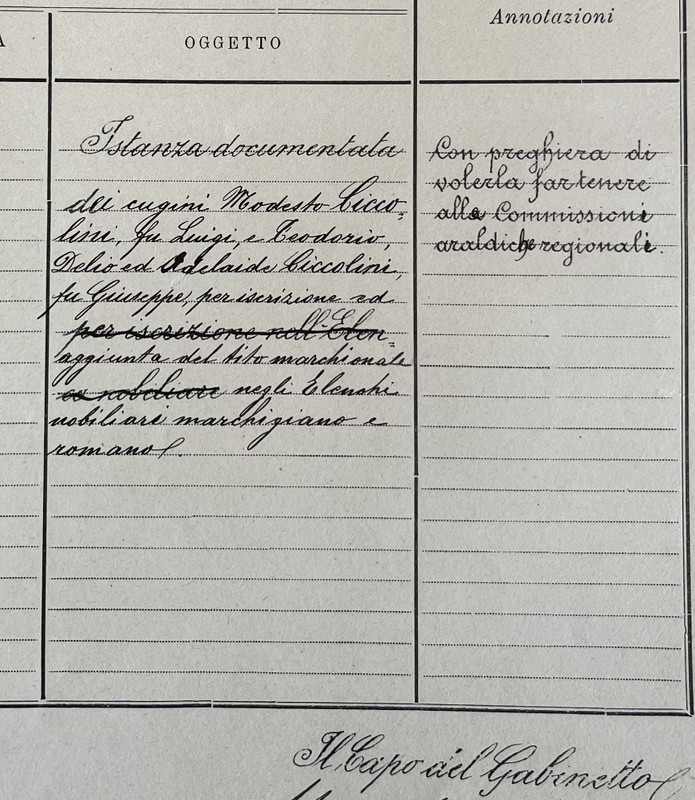 A
OGGETTO
Annotazioni
Istanza documentata
dei cugini Modesto Cicco-
lini, fu Luigi, e Teodorio,
Delio ed Adelaide Ciccolini,
fu Giuseppe, per iscrizione ed
per iscrizione nell'Elen=
aggiunta del tito marchionale
ed nobiliare negli Elenchi
nobiliari marchigiano e
romano.
Con preghiera di
volerla far tenere
alle Commissioni
araldiche regionali.
Il Capo del Gabinetto